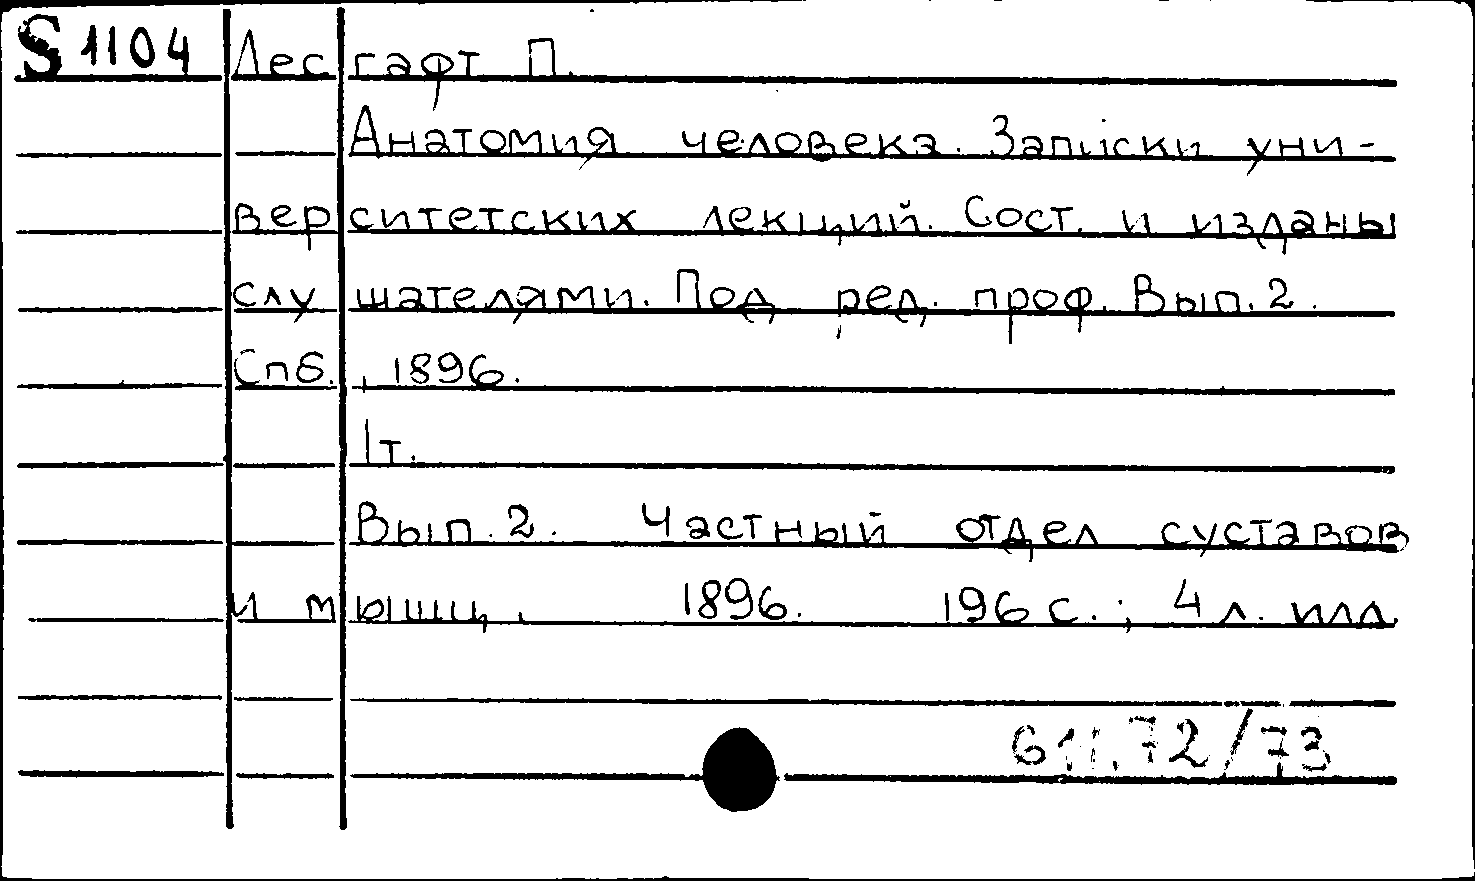 S 1104 Лесгафт П.
Анатомия человека. Записки уни-
верситетских лекций. Сост. и изданы
слушателями. Под ред. проф. Вып. 2.
Спб., 1896.
1т.
Вып. 2. Частный отдел суставов
и мышц. 1896. 196 с.; 4 л. илл
611.72/73